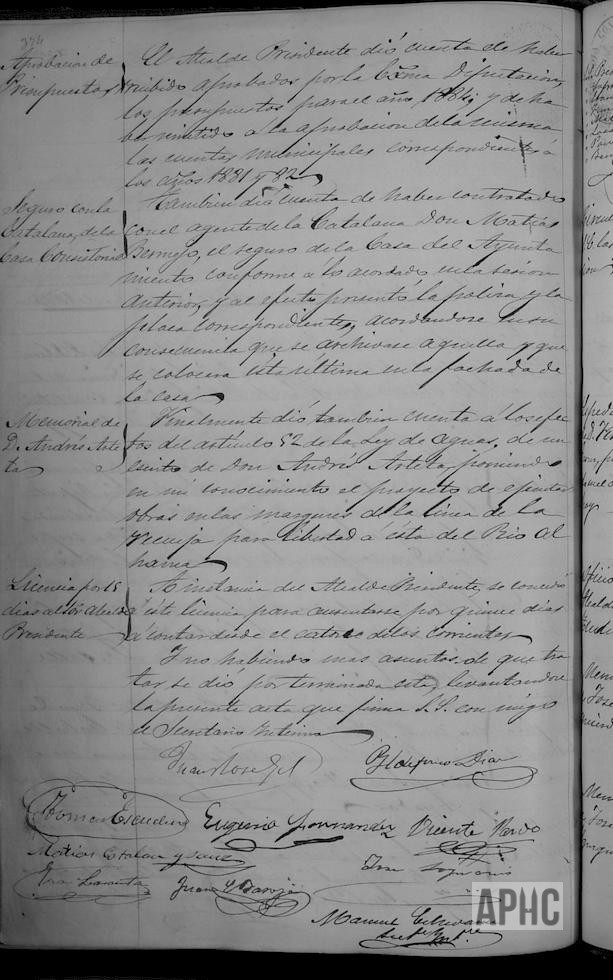 374
Aprobacion de
Presupuestos
El Alcalde Presidente dió cuenta de haber
recibido aprobados por la Excma Diputacion,
los presupuestos para el año 1884, y de ha
ber remitido a la aprobacion de la misma
las cuentas municipales correspondientes á
los años 1881 y 82.
Seguro con la
Catalana, de la
Casa Consistorial
Tambien dió cuenta de haber contratado
con el agente de la Catalana Don Matias
Bermejo, el seguro de la Casa del Ayunta
miento conforme á lo acordado en la sesion
anterior, y al efecto presentó la poliza y la
placa correspondiente, acordandose en su
consecuencia que se archivase aquella y que
se colocara ésta última en la fachada de
la casa
Memorial de
D. Andrés Arte
ta
Finalmente dió tambien cuenta á los efec
tos del artículo 52 de la Ley de aguas, de un
escrito de Don Andrés Arteta, poniendo
en mi conocimiento el proyecto de ejecutar
obras en las margenes de la linea de la
para libertad á ésta del Rio Al
hama
Licencia por 15
dias al Sr Alcalde
Presidente
A instancia del Alcalde Presidente, se concedió
á este licencia para ausentarse por quince dias
á contar desde el catorce de los corrientes
Y no habiendo mas asuntos de que tra
tar se dió por terminada esta, levantandose
la presente acta que firma S.S. con migo
el Secretario Interino
Juan José Gil
Yldefonso Diaz
Tomas Escudero
Eugenio Fernandez
Vicente Pardo
Matias Catalan y Sanz
Juan
Manuel
APHC